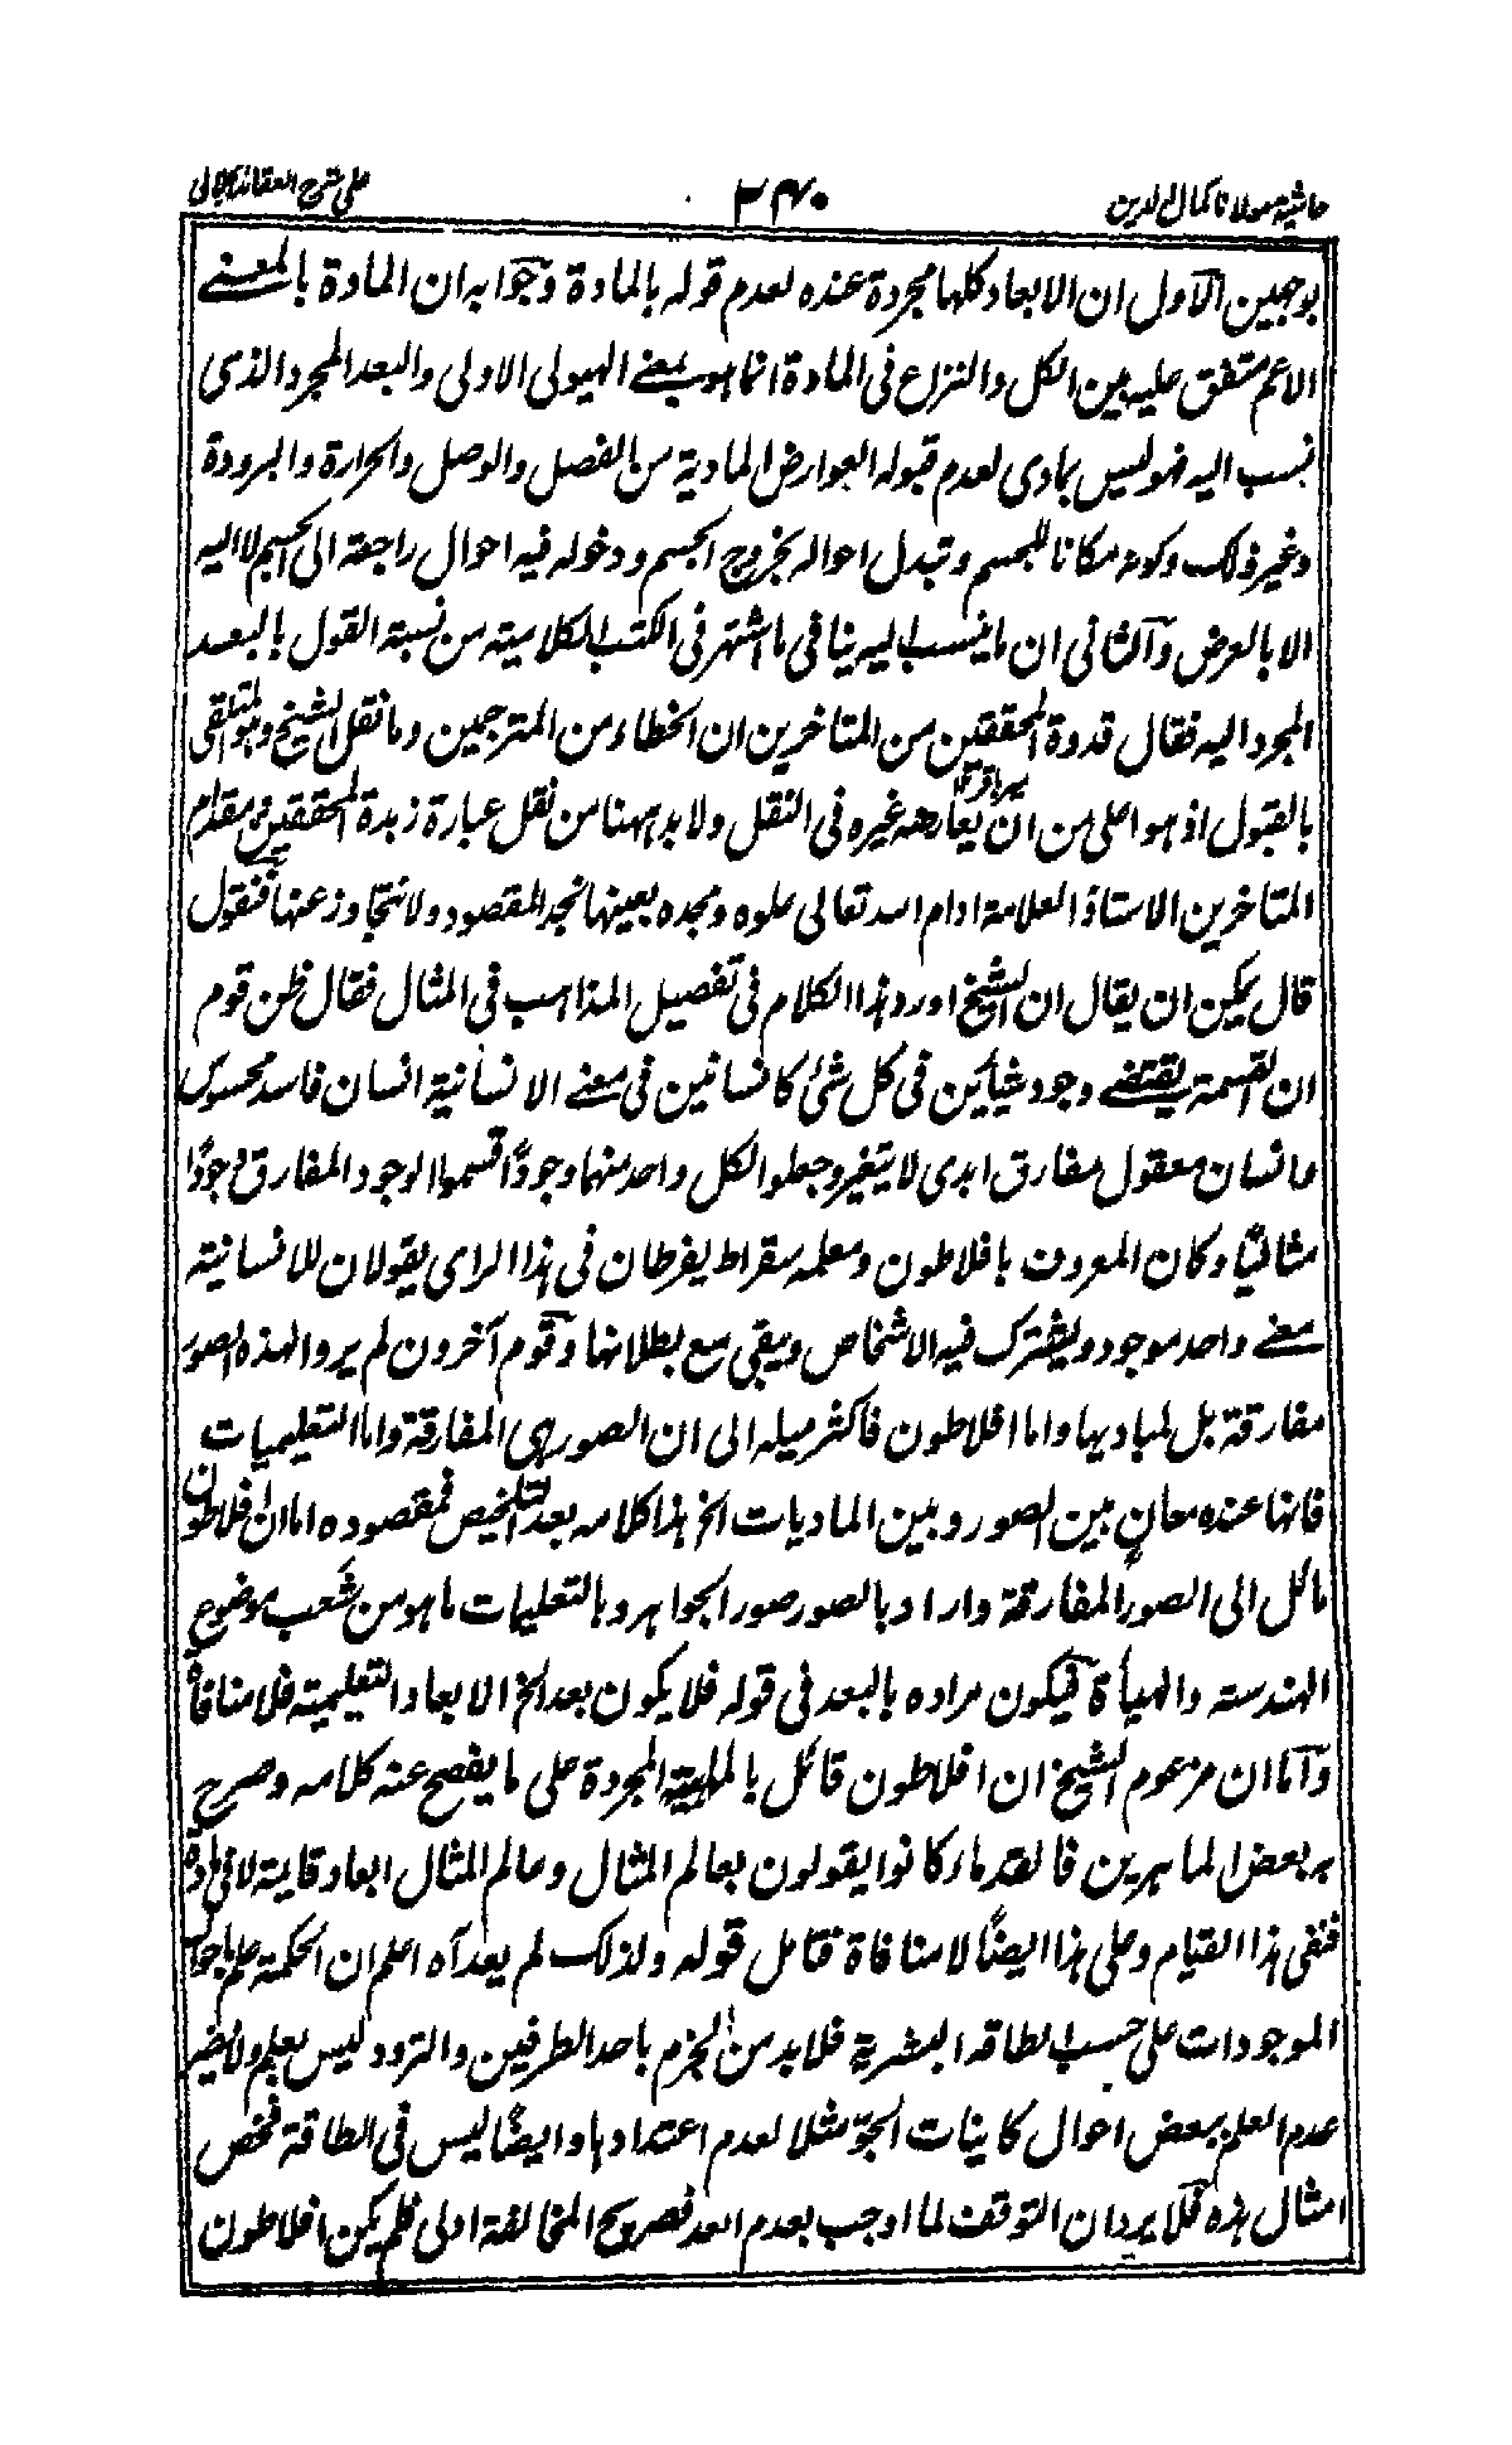 حاشیة مولانا کمال الدین
۲۴۰
علی شرح العقائد الجلالی
بوجهین الاول ان الابعاد کلها مجردة عنده لعدم قوله بالمادة وجوابه ان المادة بالمعنے
الاعم متفق علیه بین الکل والنزاع فی المادة انما هو بمعنے الهیولی الاولی والبعد المجرد الذی
نسب الیه فهو لیس بمادی لعدم قبوله العوارض المادیة من الفصل والوصل والحرارة والبرودة
وغیر ذلک وکونه مکانا للجسم وتبدل احواله بخروج الجسم ودخوله فیه احوال راجعة الی الجسم لا الیه
الا بالعرض والثانی ان ما ینسب الیه ینافی ما اشتهر فی الکتب الکلامیة من نسبة القول بالبعد
المجرد الیه فقال قدوة المحققین من المتاخرین ان الخطاء من المترجمین وما نقل الشیخ وهو المتلقی
بالقبول اذ هو اعلی من ان یعارضه غیره فی النقل ولا بد ههنا من نقل عبارة زبدة المحققین مقدام
المتاخرین الاستاذ العلامة ادام الله تعالی علوه ومجده بعینها نجد المقصود ولا نتجاوز عنها فنقول
قال یمکن ان یقال ان الشیخ اورد هذا الکلام فی تفصیل المذاهب فی المثال فقال ظن قوم
ان القسمة یقتضے وجود شیئین فی کل شئ کانسانین فی معنے الانسانیة انسان فاسد محسوس
وانسان معقول مفارق ابدی لا یتغیر وجعلوا لکل واحد منهما وجودًا قسموا الوجود المفارق وجودًا
مثالیًا وکان المعروف بافلاطون ومعلمه سقراط یفرطان فی هذا الرای یقولان للانسانیة
معنے واحد موجود ویشترک فیه الاشخاص ویبقی مع بطلانها وقوم آخرون لم یروا لهذه الصور
مفارقة بل لمبادیها واما افلاطون فاکثر میله الی ان الصور هی المفارقة واما التعلیمیات
فانها عنده معانٍ بین الصور وبین المادیات الخ هذا کلامه بعد التلخیص فمقصوده اما ان افلاطون
مائل الی الصور المفارقة واراد بالصور صور الجواهر وبالتعلیمات ما هو من شعب موضوع
الهندسة والهیأة فیکون مراده بالبعد فی قوله فلا یکون بعد الخ الابعاد التعلیمیة فلا منافاة
واما ان مزعوم الشیخ ان افلاطون قائل بالماهیة المجردة علی ما یفصح عنه کلامه وصرح
به بعض الماهرین فالقدماء کانوا یقولون بعالم المثال وعالم المثال ابعاد قایمة لا فی مادة
فنفی هذا القیام وعلی هذا ایضًا لا منافاة فتامل قوله ولذلک لم یعد آه اعلم ان الحکمة علم باحوال
الموجودات علی حسب الطاقة البشریة فلا بد من الجزم باحد الطرفین والتردد لیس بعلم ولا یضر
عدم العلم ببعض احوال کاینات الجوّ مثلا لعدم اعتدادها وایضًا لیس فی الطاقة فحص
امثال هذه فلا یرد ان التوقف لما اوجب بعدم العد فصریح المخالفة اولی فلم یکن افلاطون